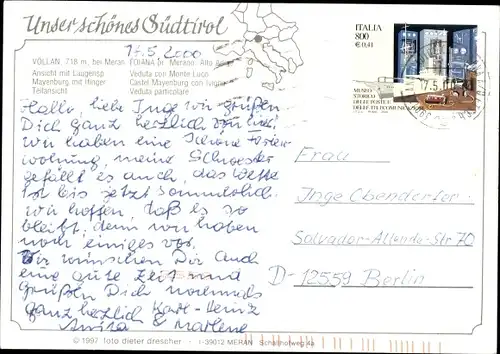 Unser schönes Südtirol
17.5.2000
VÖLLAN, 718 m, bei Meran
Ansicht mit Laugensp
Mayenburg mit Hinger
Teilansicht
FOIANA pr. Merano - Alto
Veduta con Monte Luco
Castel Mayenburg con Ivigna
Veduta particolare
ITALIA
800
€ 0,41
MUSEO
STORICO
DELLE POSTE E
DELLE TELECOMUNICAZIONI
17.5.
Hallo, liebe Inge wir grüßen
Dich ganz herzlich
wir haben eine schöne Ferien
wohnung, meine Schwester
gefällt es auch, das Wetter
ist bis jetzt sommerlich.
wir hoffen, daß es so
bleibt, denn wir haben
noch einiges vor.
Wir wünschen Dir auch
eine gute Zeit und
grüßen Dich nochmals
ganz herzlich Karl-Heinz
Anita & Marlene
Frau
Inge Obendorfer
Salvador-Allende-Str 70
D-12559 Berlin
© 1997 foto dieter drescher · I-39012 MERAN Schaffhofweg 4a